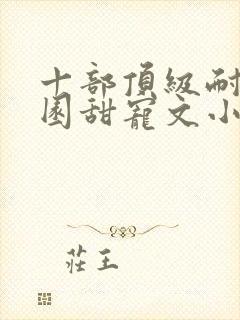 十部頂級耐
園甜寵文小
莊王